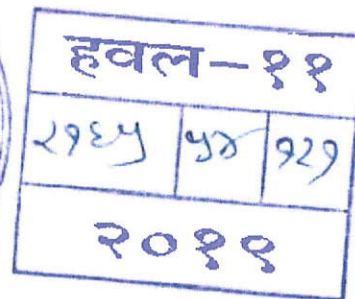 हवल-११
२१६५ ५४ १२१
२०१९